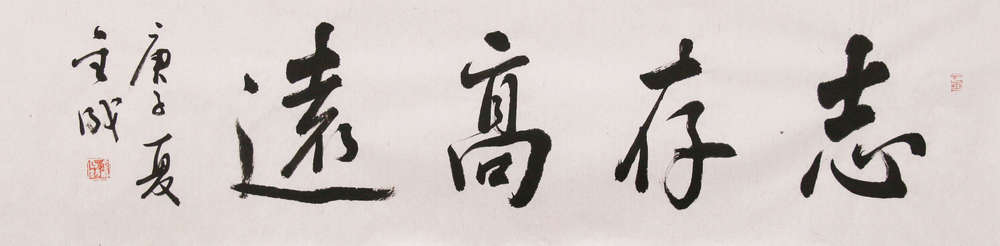 志存高遠
庚子夏
金成